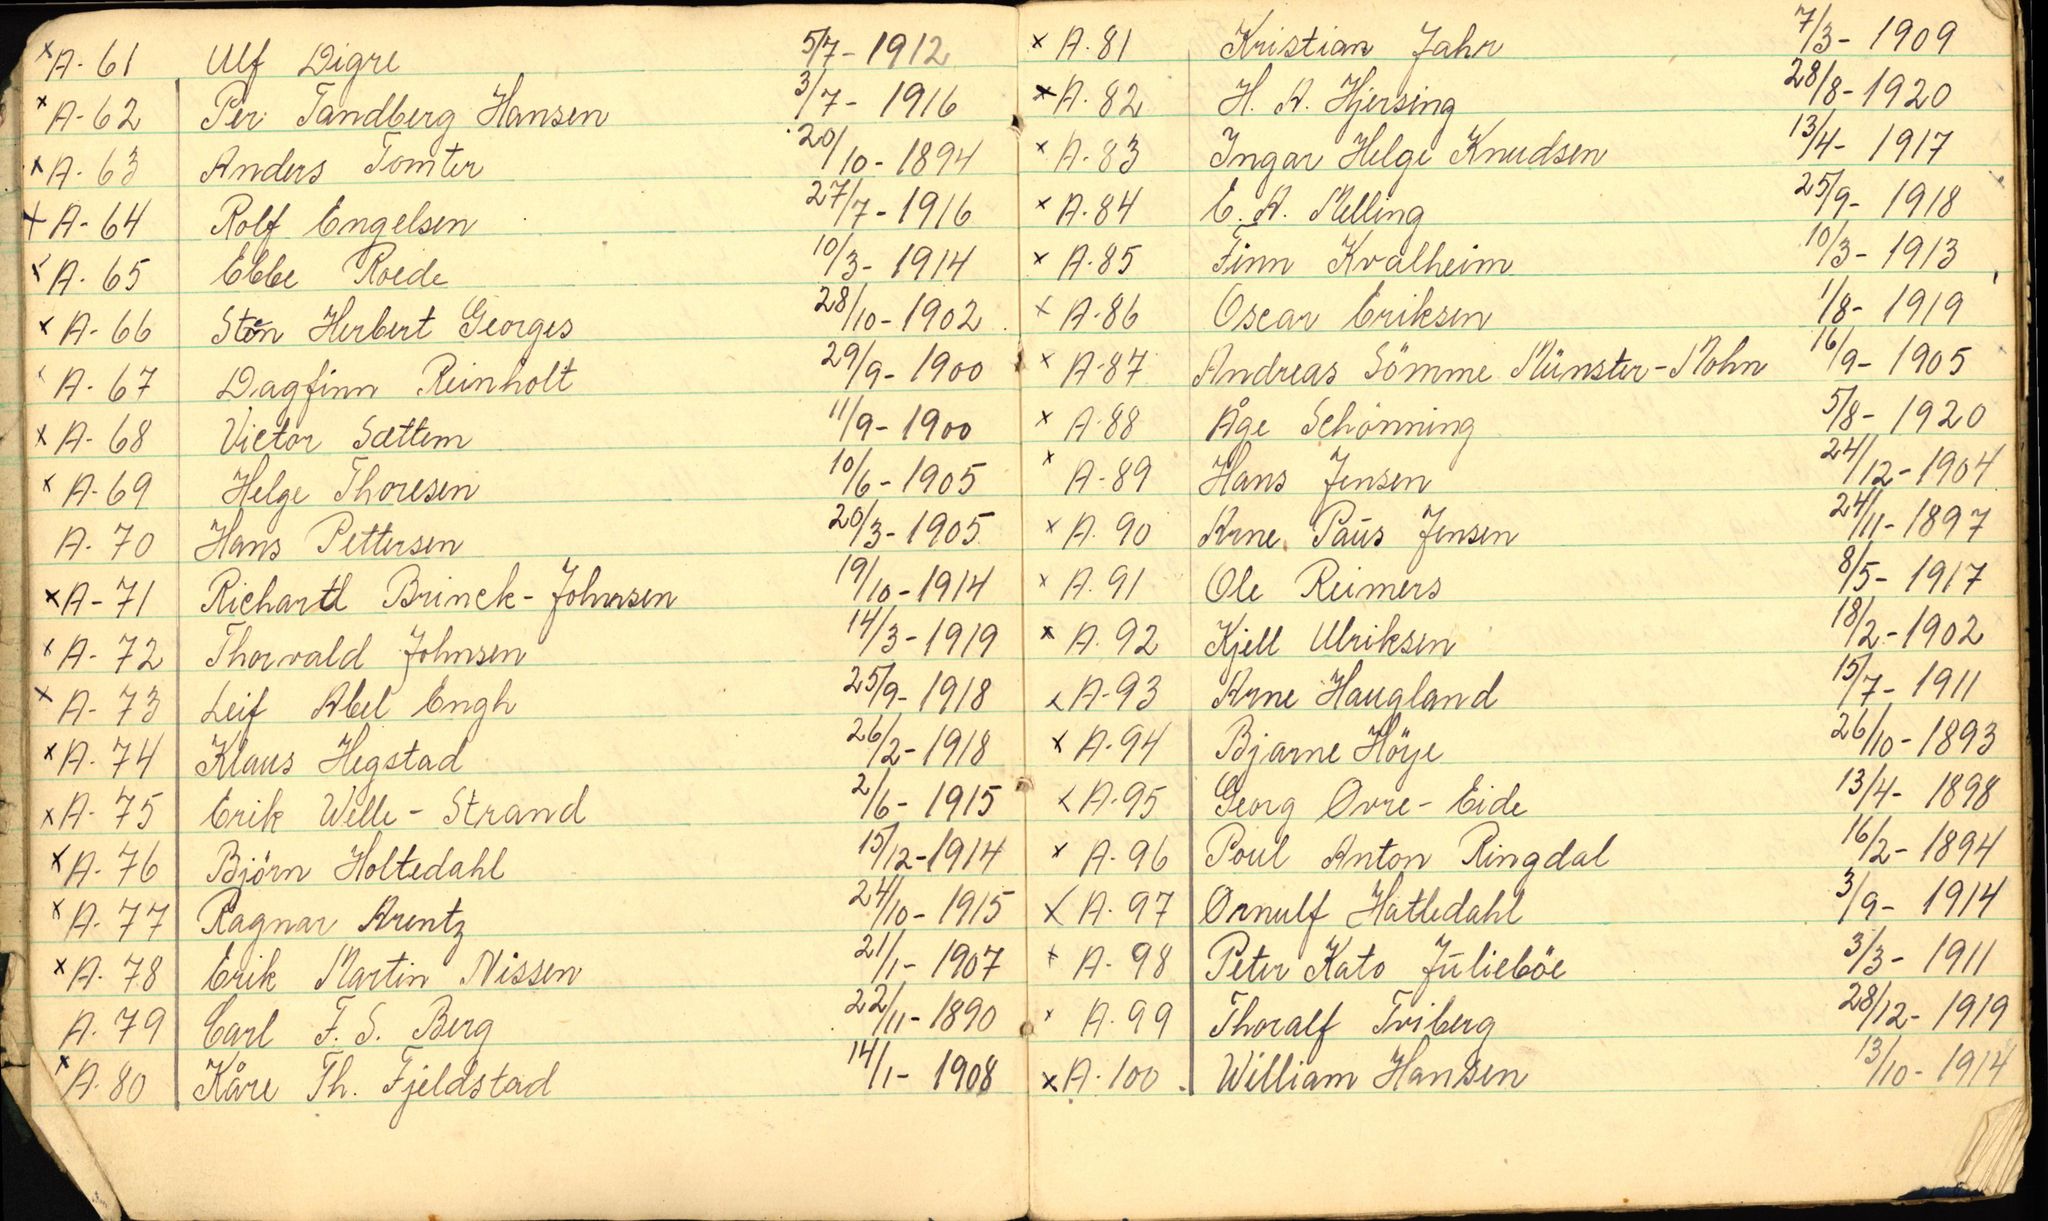 x A-61 Ulf Digre 5/7-1912
x A-62 Per Tandberg Hansen 3/7-1916
x A-63 Anders Tomter 20/10-1894
x A-64 Rolf Engelsen 27/7-1916
x A-65 Ebbe Roede 10/3-1914
x A-66 Sten Herbert Georges 28/10-1902
x A-67 Dagfinn Reinholt 29/9-1900
x A-68 Victor Sættem 11/9-1900
x A-69 Helge Thoresen 10/6-1905
A-70 Hans Pettersen 20/3-1905
x A-71 Richard Brinck-Johnsen 19/10-1914
x A-72 Thorvald Johnsen 14/3-1919
x A-73 Leif Abel Engh 25/9-1918
x A-74 Klaus Hegstad 26/2-1918
x A-75 Erik Welle-Strand 2/6-1915
x A-76 Björn Holtedahl 15/12-1914
x A-77 Ragnar Arentz 24/10-1915
x A-78 Erik Martin Nissen 21/1-1907
A-79 Carl F. S. Berg 22/11-1890
x A-80 Kåre Th. Fjeldstad 14/1-1908
x A-81 Kristian Jahr 7/3-1909
x A-82 H. A. Hjersing 28/8-1920
x A-83 Ingar Helge Knudsen 13/4-1917
x A-84 E. A. Melling 25/9-1918
x A-85 Finn Kvalheim 10/3-1913
x A-86 Oscar Eriksen 1/8-1919
x A-87 Andreas Sömme Münster-Mohn 16/9-1905
x A-88 Åge Schönning 5/8-1920
x A-89 Hans Jensen 24/12-1904
x A-90 Arne Paus Jensen 24/11-1897
x A-91 Ole Reimers 8/5-1917
x A-92 Kjell Ulriksen 18/2-1902
x A-93 Arne Haugland 15/7-1911
x A-94 Bjarne Höye 26/10-1893
x A-95 Georg Ovre-Eide 13/4-1898
x A-96 Poul Anton Ringdal 16/2-1894
x A-97 Ornulf Hatledahl 3/9-1914
x A-98 Peter Kato Julieböe 3/3-1911
x A-99 Thoralf Triberg 28/12-1919
x A-100 William Hansen 13/10-1914